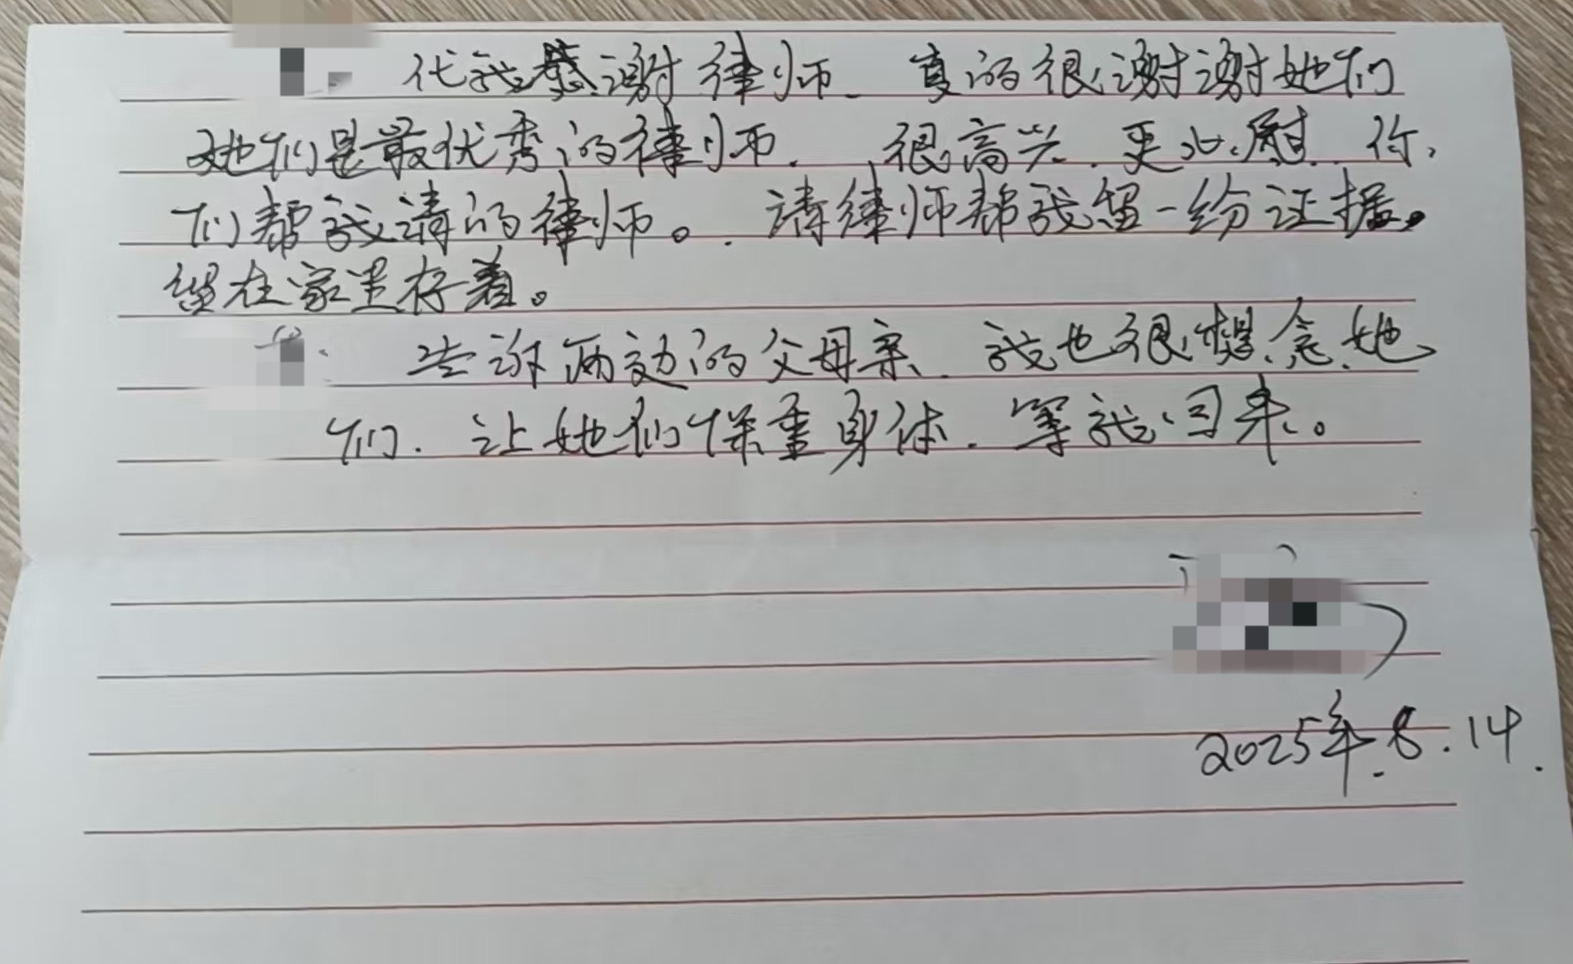 代我感谢律师. 真的很谢谢她们
她们是最优秀的律师. 很高兴. 更心慰. 你
们帮我请的律师。. 请律师帮我留一份证据。
留在家里存着。
告诉两边的父母亲. 我也很想念她
们. 让她们保重身体. 等我回来。
2025年.8.14.